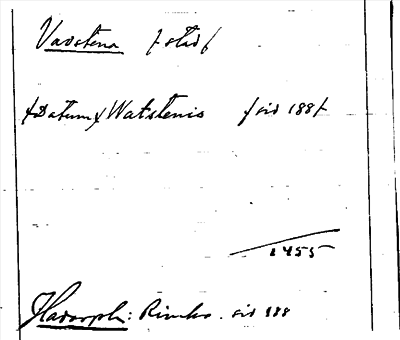 Vadstena /stad/
/Datum/ Watstenis /sid 188/
1455
Hadorph: Rimkr. sid 188